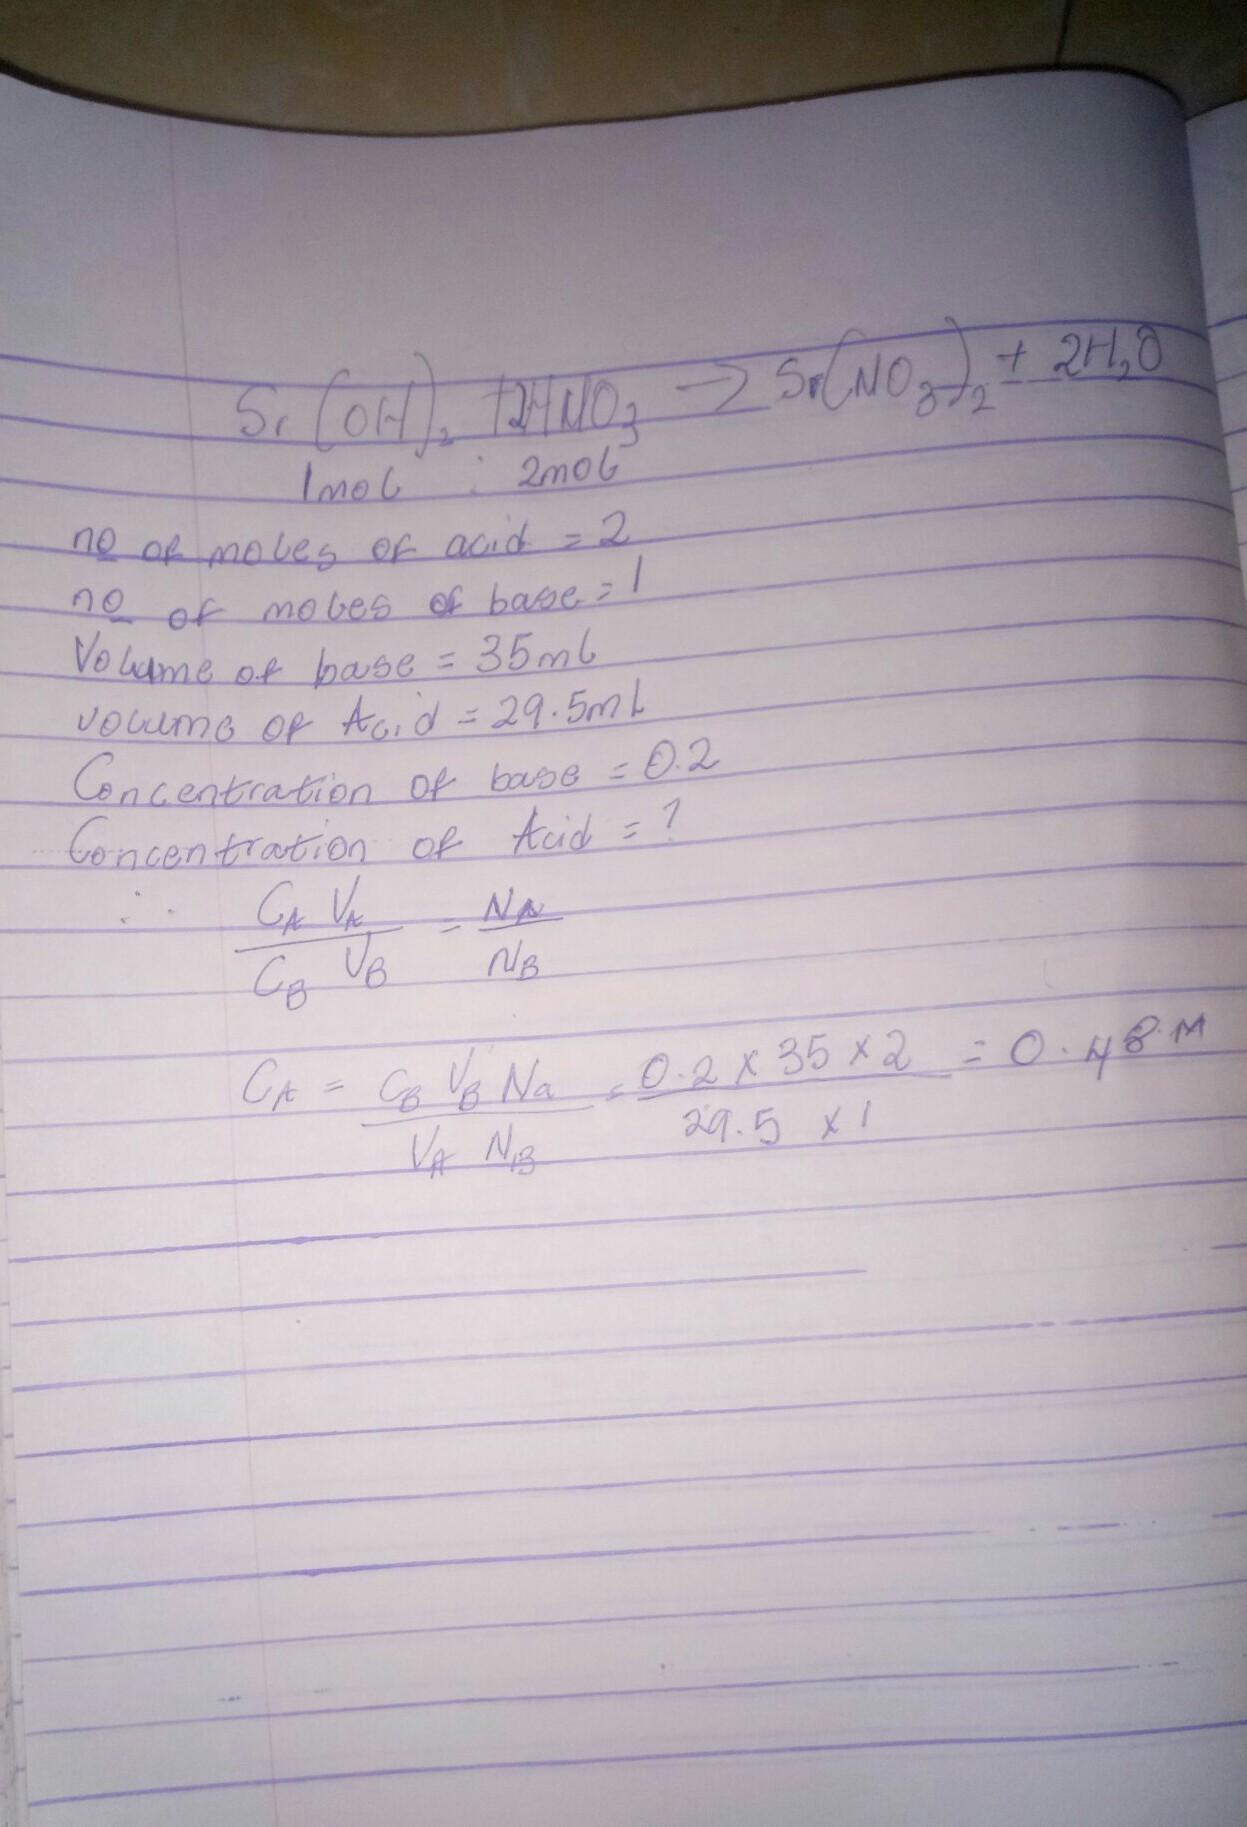 Sr(OH)₂ + 2HNO₃ → Sr(NO₃)₂ + 2H₂O
1mol : 2mol
no of moles of acid = 2
no of moles of base = 1
Volume of base = 35ml
volume of Acid = 29.5mL
Concentration of base = 0.2
Concentration of Acid = ?
∴ C_A V_A / C_B V_B = N_A / N_B
C_A = C_B V_B Na / V_A N_B = 0.2 x 35 x 2 / 29.5 x 1 = 0.48M